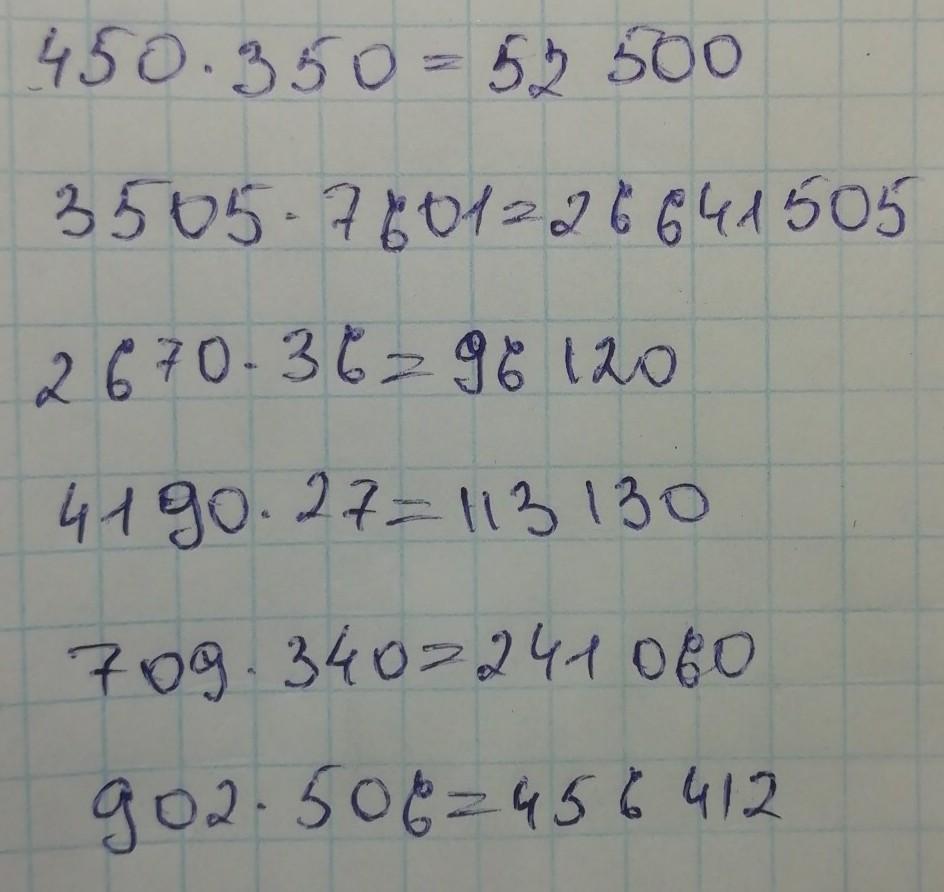 450·350=52 500
3505·7601=26641505
2670·36=96 120
4190·27=113 130
709·340=241 060
902·506=456 412